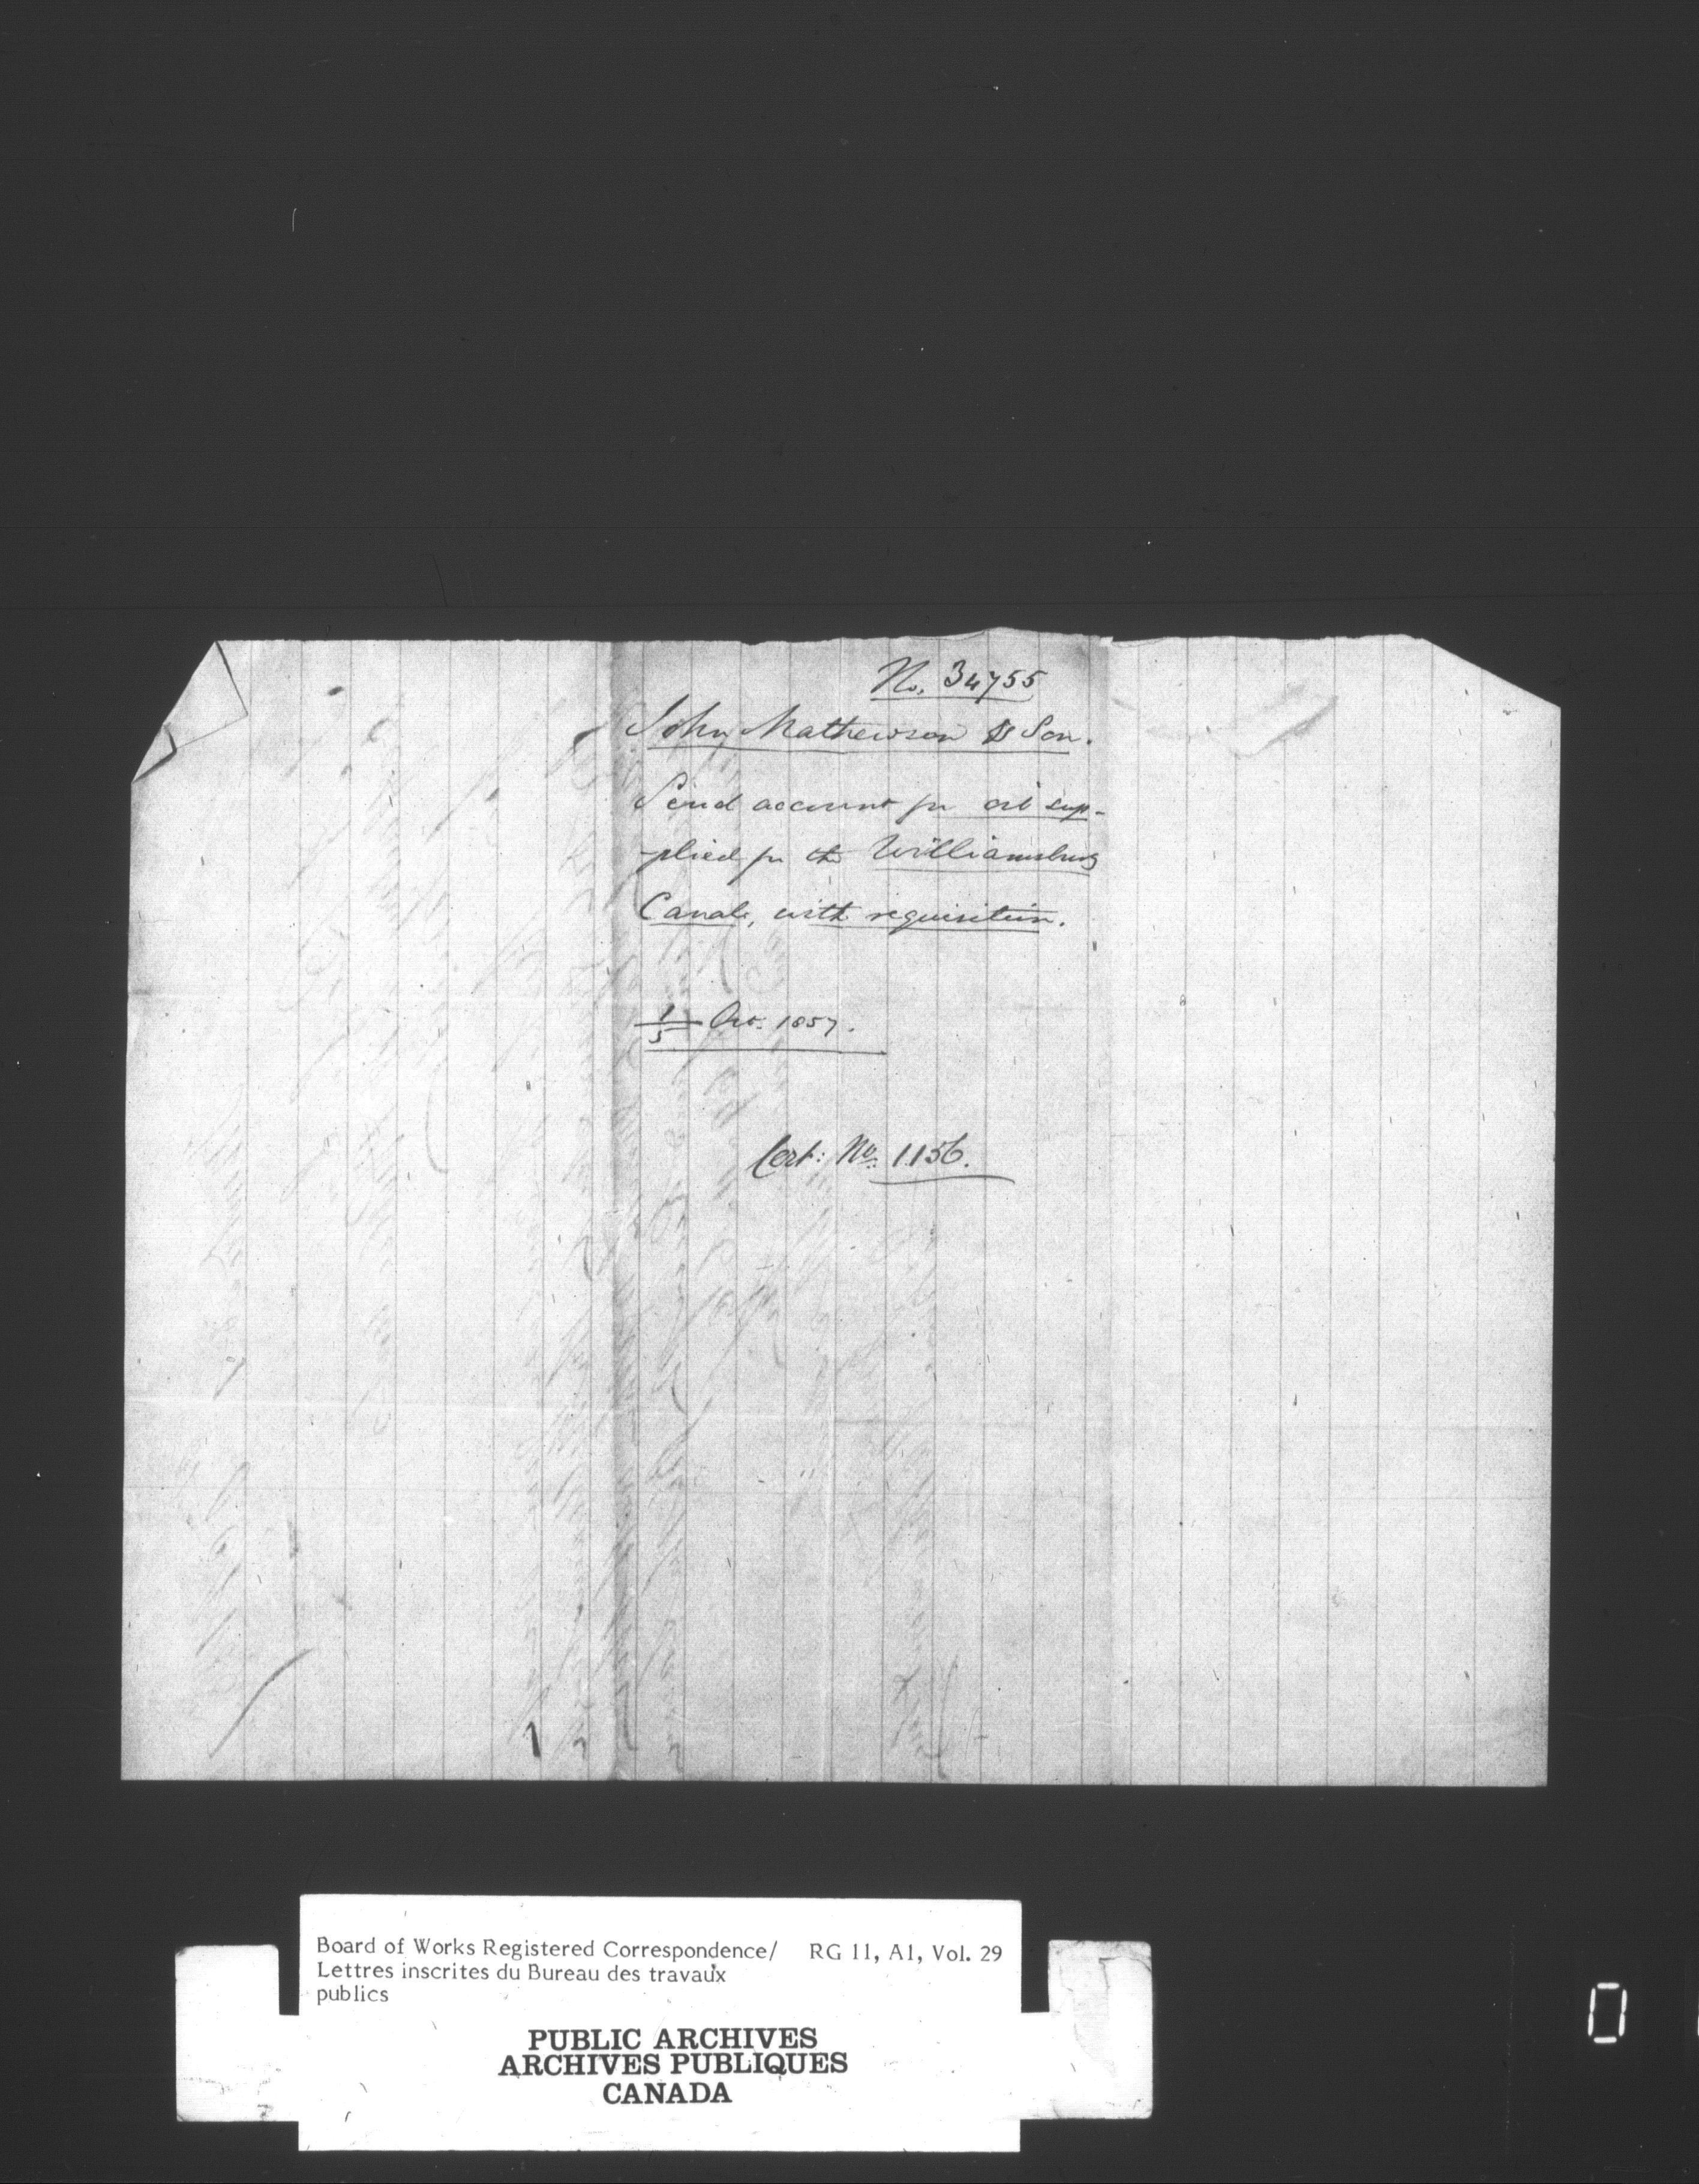 No. 34755
John Mathewson & Son.
Send account for oil sup-
-plied for the Williamsburg
Canals, with requisition.
1/5 Oct. 1857.
Cert: No. 1156.
Board of Works Registered Correspondence/ RG 11, A1, Vol. 29
Lettres inscrites du Bureau des travaux
publics
PUBLIC ARCHIVES
ARCHIVES PUBLIQUES
CANADA
0